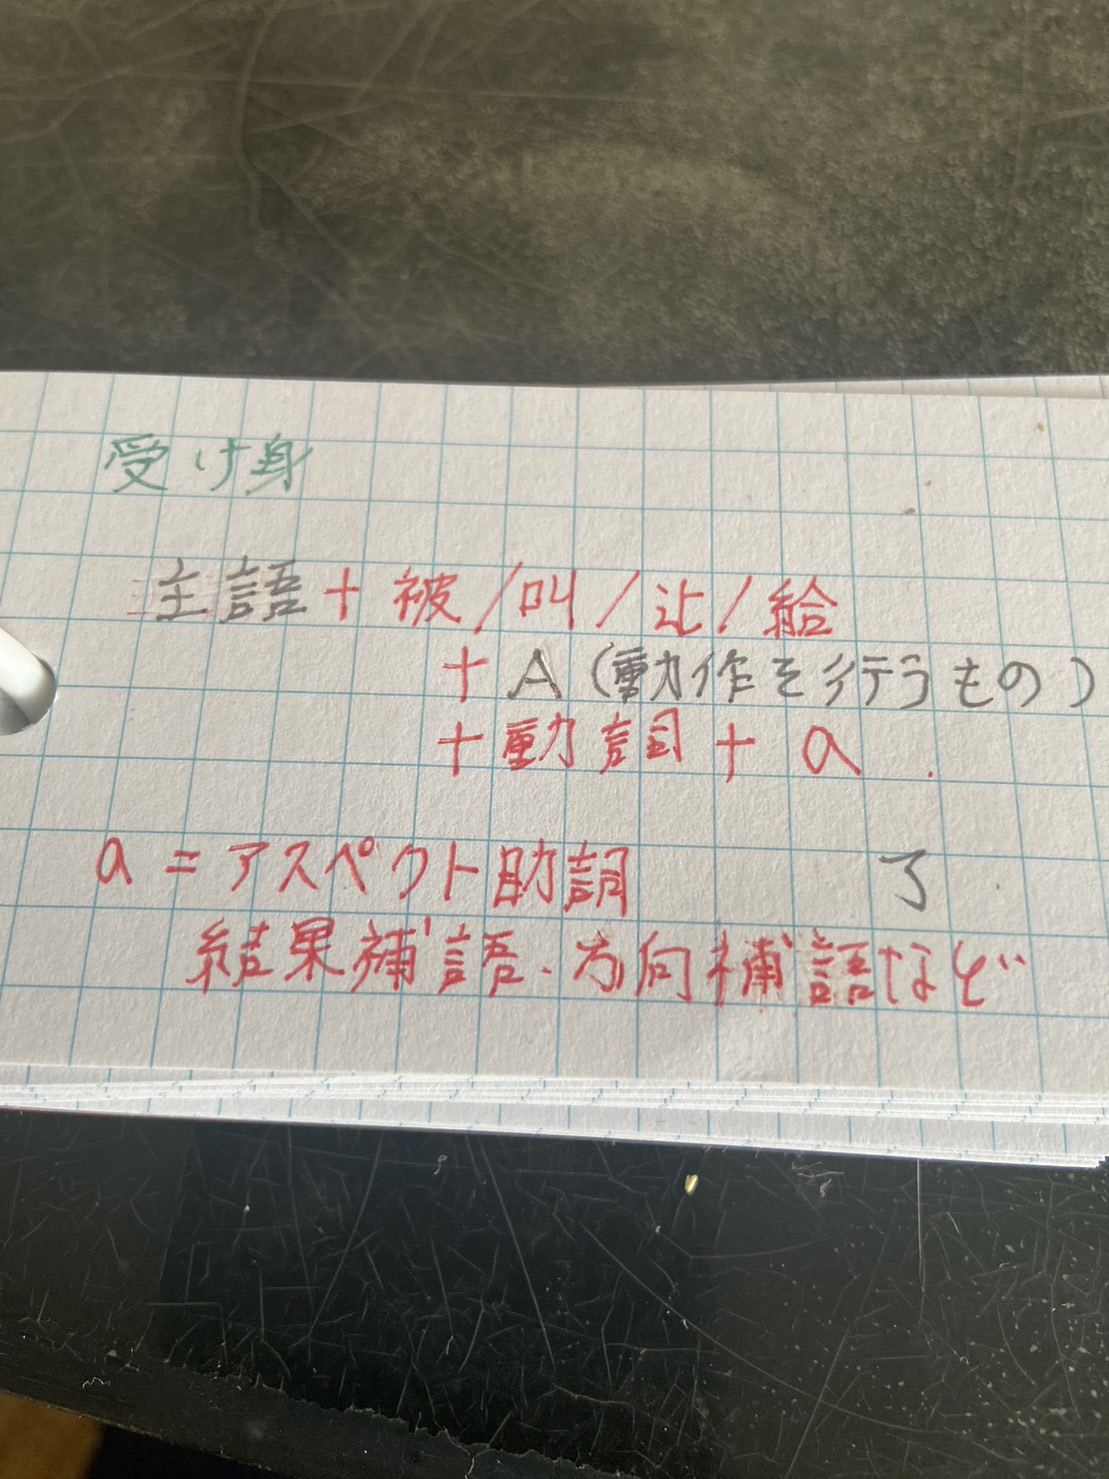 受け身
主語+被/叫/让/給
+A(動作を行うもの)
+動詞+a
a=アスペクト助詞 了
結果補語、方向補語など